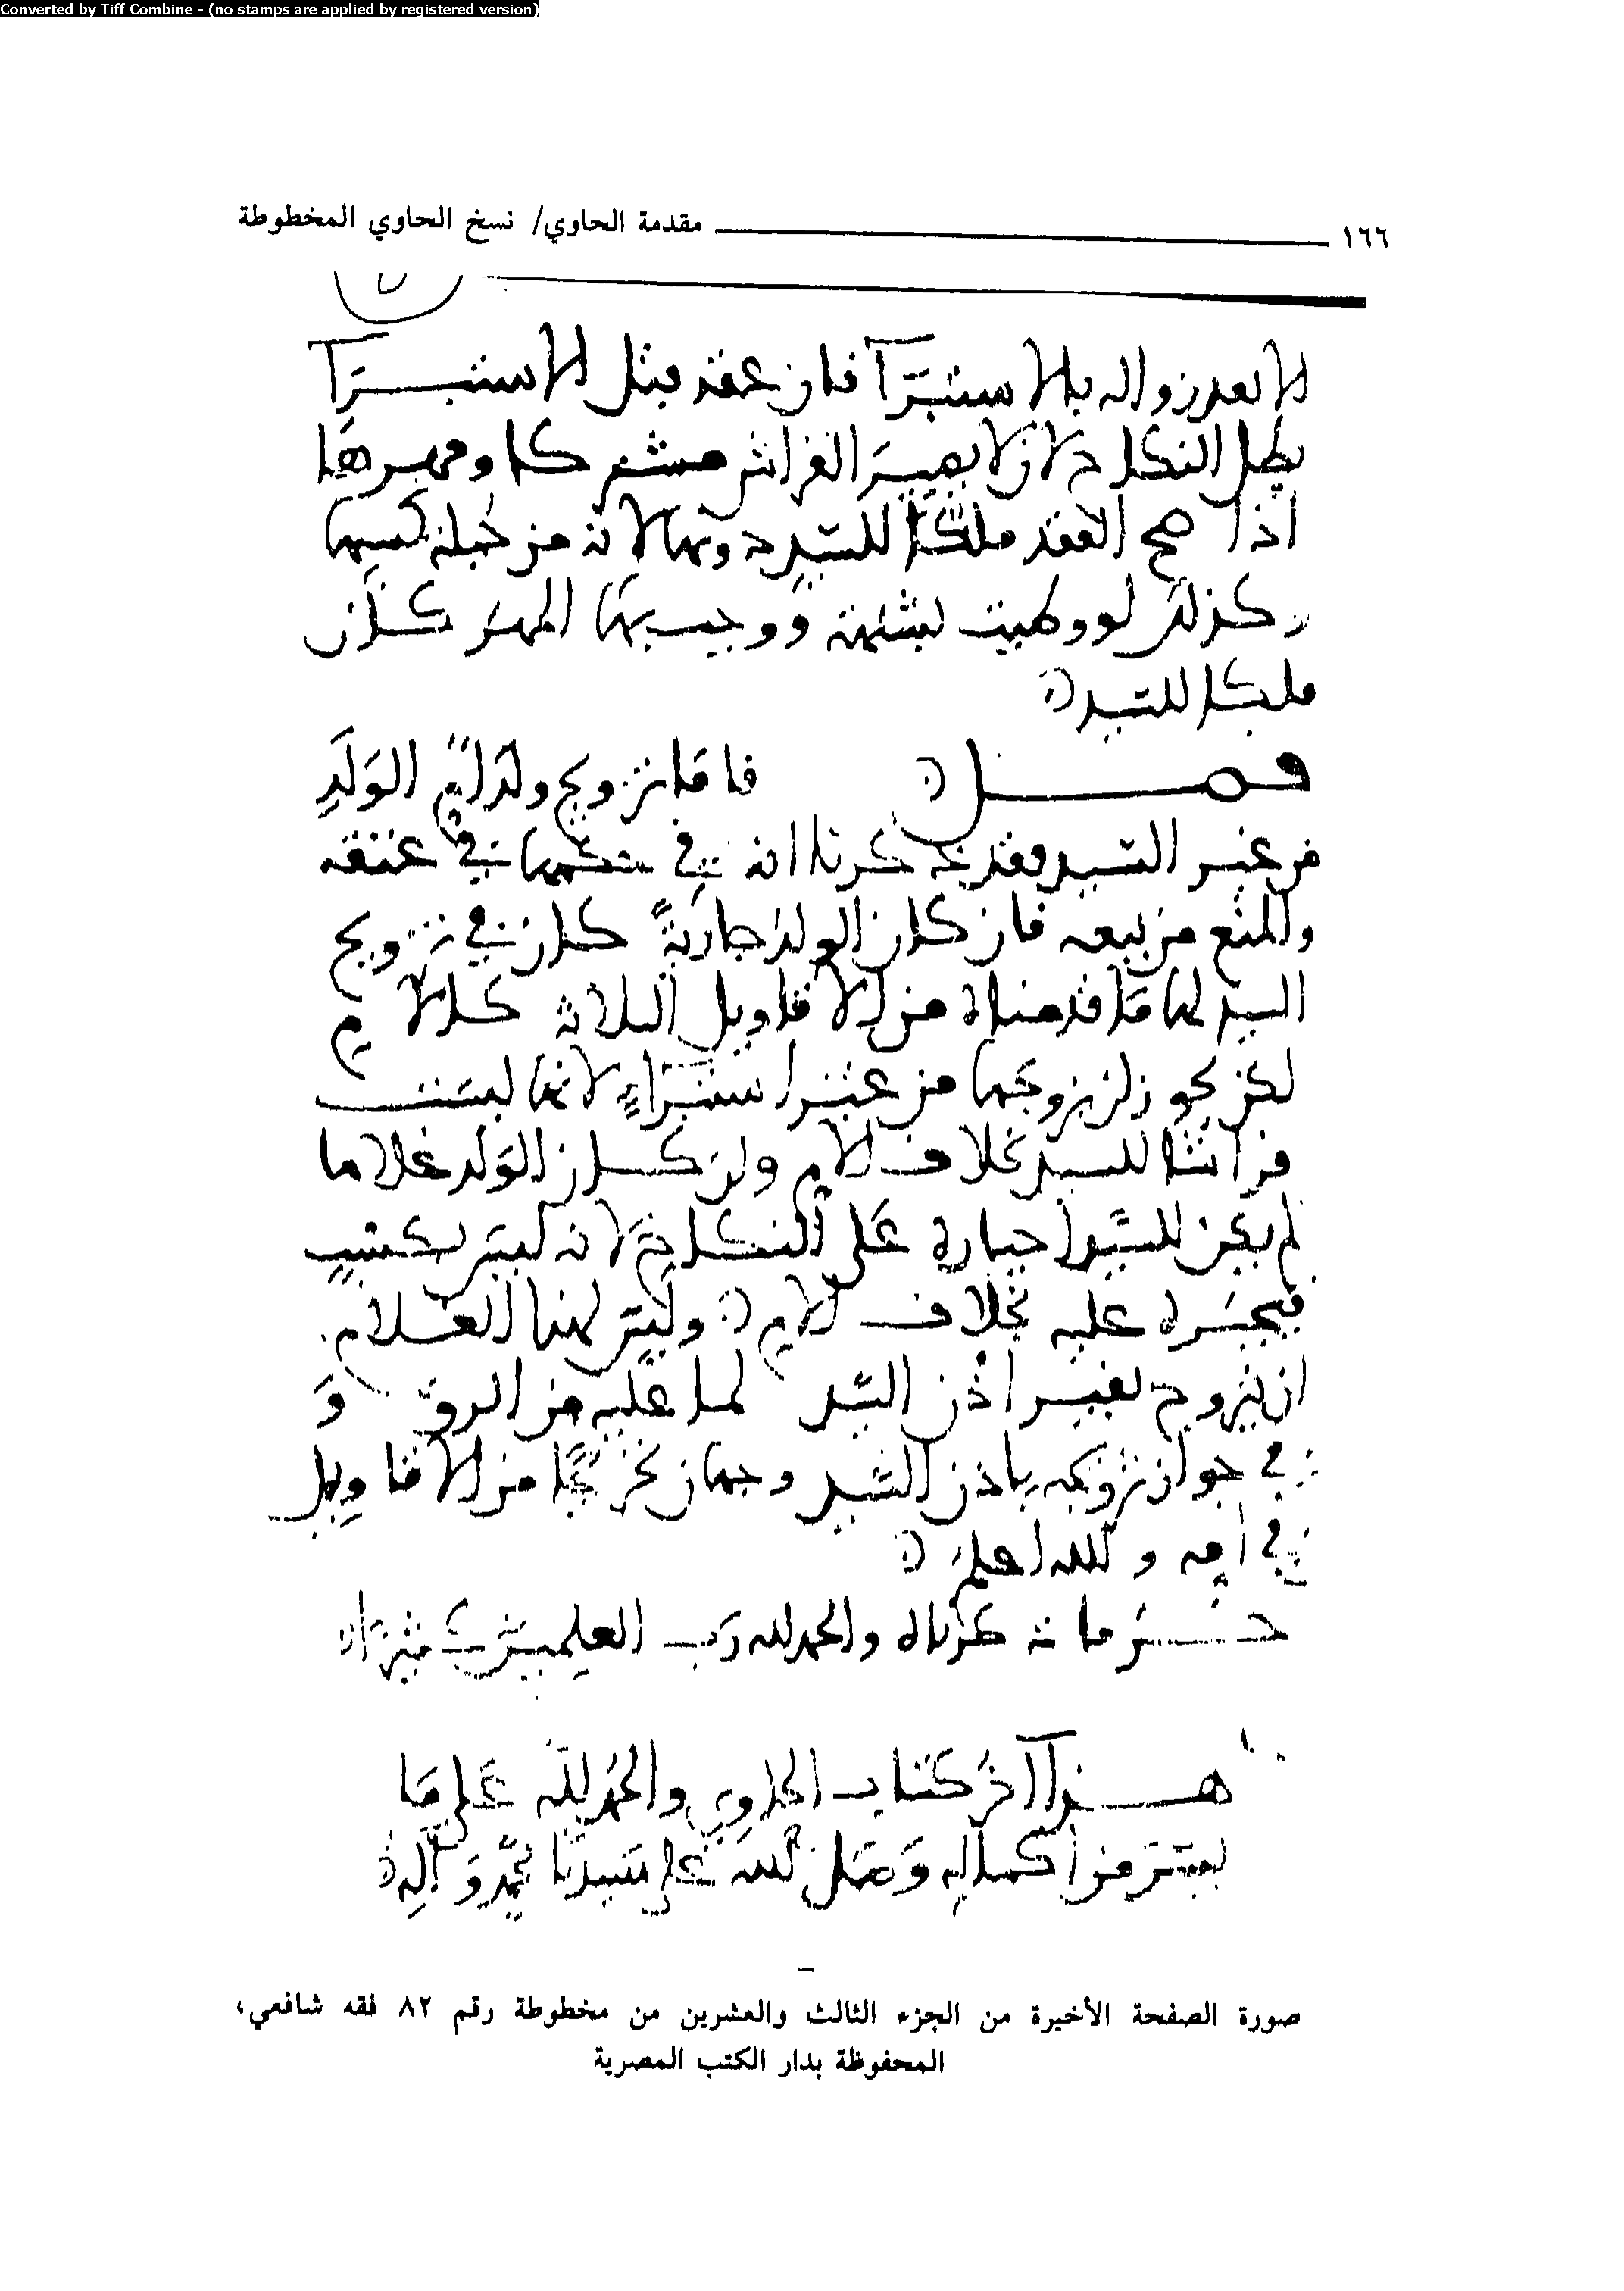 Converted by Tiff Combine - (no stamps are applied by registered version)
١٦٦ مقدمة الحاوي/ نسخ الحاوي المخطوطة
الا بعد زواله بالاستبرآ فان عقد قبل الاستبرآ
بطل النكاح لان لا يصير الفراش مشتركا ومهرها
اذا صح العقد ملكا للسيد دونها لانه من جملة كسبها
وكذلك لو وطيت بشبهة ووجب بها المهر كان
ملكا للسيد
فصل فاما تزويج ولد ام الولد
من غير السيد فقد ذكرنا انه في حكمها في عتقه
والمنع من بيعه فان كان الولد جارية كان في تزويج
السيد لها ما قدمناه من الاقاويل الثلاثة كالام
لكن يجوز ان يزوجها من غير استبراء لانها ليست
فراشا للسيد بخلاف الام وان كان الولد غلاما
لم يكن للسيد اجباره على النكاح لانه ليس بكسب
فيجبره عليه بخلاف الام وليس لهذا الغلام
ان يتزوج بغير اذن السيد لما عليه من الرق و
في جواز تزويجه باذن السيد وجهان تخريجا من الاقاويل
في امه والله اعلم
ما ذكرناه والحمد لله رب العلمين كثيرا
هذا آخر كتاب الحاوي والحمد لله على ما
يسر من اكماله وصلى الله على سيدنا محمد وآله
صورة الصفحة الأخيرة من الجزء الثالث والعشرين من مخطوطة رقم ٨٢ فقه شافعي،
المحفوظة بدار الكتب المصرية